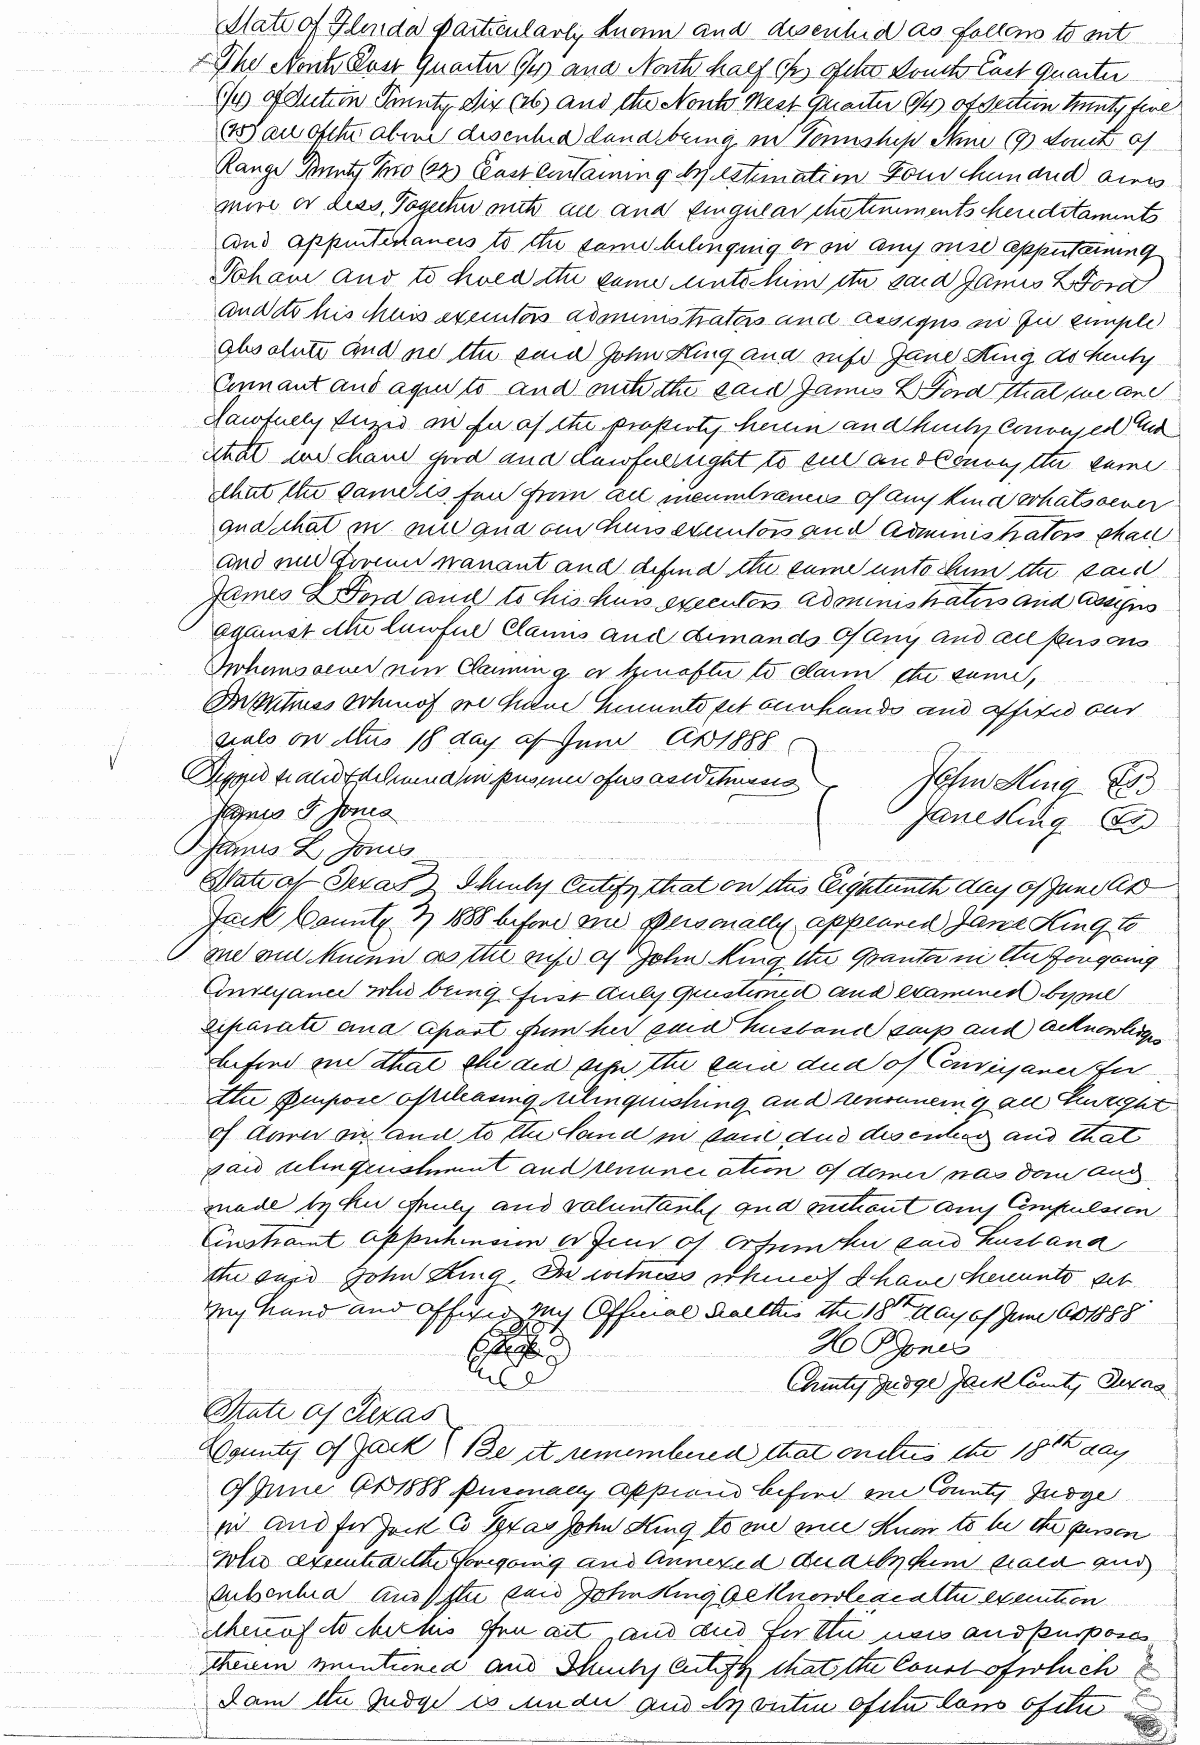 State of Florida particularly known and described as follows to wit
The North East Quarter (1/4) and North half (1/2) of the South East Quarter
(1/4) of Section Twenty Six (26) and the North West Quarter (1/4) of Section twenty five
(25) all of the above described land being in Township Nine (9) South of
Range Twenty Two (22) East Containing by estimation Four hundred acres
more or less, Together with all and singular the tenements hereditaments
and appurtenances to the same belonging or in any wise appertaining
To have and to hold the same unto him the said James L Ford
and to his heirs executors administrators and assigns in fee simple
absolute and we the said John King and wife Jane King do hereby
Covenant and agree to and with the said James L Ford that we are
lawfully seized in fee of the property herein and hereby Conveyed and
that we have good and lawful right to sell and Convey the same
that the same is free from all incumbrances of any kind whatsoever
and that we will and our heirs executors and administrators shall
and will forever warrant and defend the same unto him the said
James L Ford and to his heirs executors administrators and assigns
against the lawful Claims and demands of any and all persons
Whomsoever now Claiming or hereafter to claim the same,
In Witness Whereof we have hereunto set our hands and affixed our
seals on this 18 day of June AD 1888
Signed sealed & delivered in presence of us as Witnesses
John King (LS)
James T Jones
Jane King (LS)
James L Jones
State of Texas } I hereby Certify that on this Eighteenth day of June AD
Jack County } 1888 before me personally appeared Jane King to
me well Known as the wife of John King the Grantor in the foregoing
Conveyance who being first duly questioned and examined by me
separate and apart from her said husband says and acknowledges
before me that she did sign the said deed of Conveyance for
the purpose of releasing relinquishing and renouncing all her right
of dower in and to the land in said deed described and that
said relinquishment and renunciation of dower was done and
made by her freely and voluntarily and without any Compulsion
Constraint apprehension or fear of or from her said husband
the said John King. In witness whereof I have hereunto set
my hand and affixed my Official Seal this the 18th day of June AD 1888
H P Jones
County Judge Jack County Texas
State of Texas
County of Jack } Be it remembered that on this the 18th day
of June AD 1888 personally appeared before me County Judge
in and for Jack Co Texas John King to me well Know to be the person
Who executed the foregoing and annexed deed by him seald and
subscribed and the said John King acknowledged the execution
thereof to be his free act and deed for the uses and purposes
therein mentioned and I hereby Certify that the Court of which
I am the Judge is under and by virtue of the laws of the